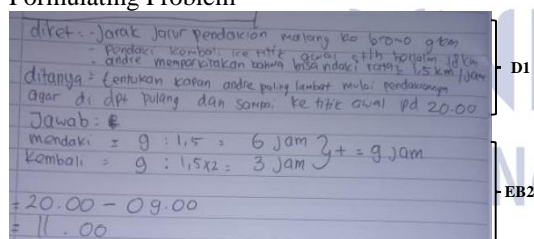 Formulating Problem
diket = - Jarak Jalur pendakian malang ke bromo 9 km
- Pendaki kembali ke titik awal stlh berjalan 18 km
- andre memperkirakan bahwa bisa ndaki rata² 1,5 km/jam
ditanya = tentukan kapan andre paling lambat mulai pendakiannya
agar di dpt pulang dan sampai ke titik awal pd 20.00
Jawab :
mendaki = 9 : 1,5 = 6 jam
kembali = 9 : 1,5x2 = 3 jam } + = 9 jam
= 20.00 - 09.00
= 11.00
D1
EB2